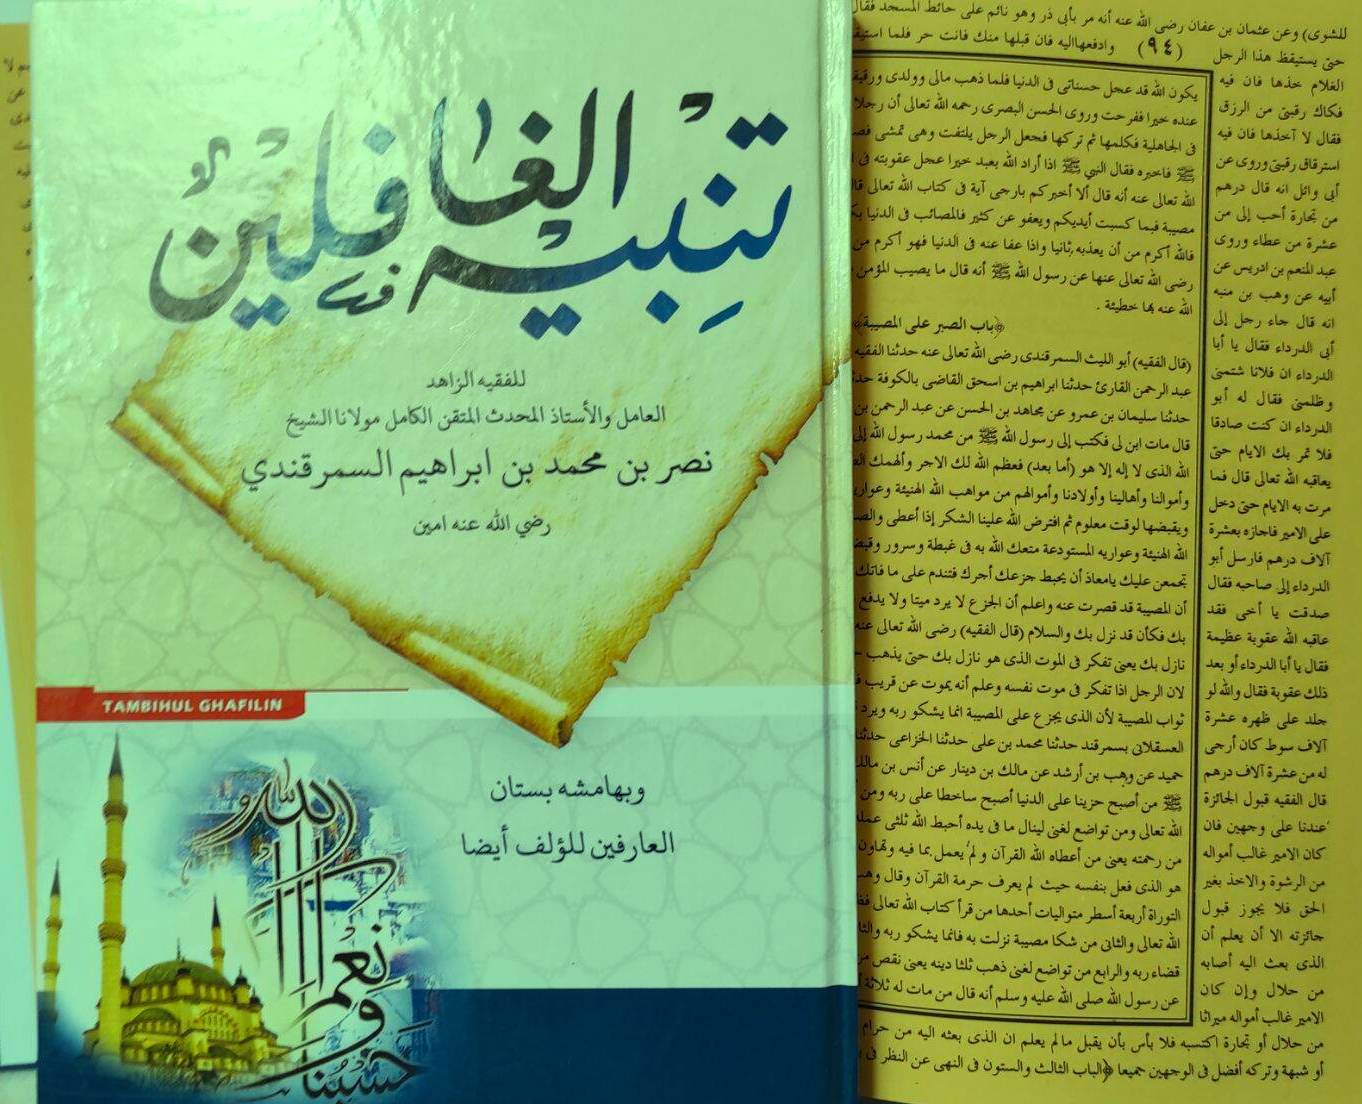 تنبيه الغافلين
في
للفقيه الزاهد
العامل والأستاذ المحدث المتقن الكامل مولانا الشيخ
نصر بن محمد بن ابراهيم السمرقندي
رضي الله عنه امين
TAMBIHUL GHAFILIN
وبهامشه بستان
العارفين للؤلف أيضا
حسبنا الله ونعم
للشوى) وعن عثمان بن عفان رضى الله عنه أنه مر بأبى ذر وهو نائم على حائط المسجد فقال
حتى يستيقظ هذا الرجل (٩٤) وادفعها اليه فان قبلها منك فانت حر فلما
الغلام خذها فان فيه
فكاك رقبتى من الرزق
فقال لا آخذها فان فيه
استرقاق رقبتى وروى عن
أبى وائل انه قال درهم
من تجارة أحب إلى من
عشرة من عطاء وروى
عبد المنعم بن ادريس عن
أبيه عن وهب بن منبه
انه قال جاء رجل إلى
أبى الدرداء فقال يا أبا
الدرداء ان فلانا شتمنى
وظلمنى فقال له أبو
الدرداء ان كنت صادقا
فلا تمر بك الايام حتى
يعاقبه الله تعالى قال فما
مرت به الايام حتى دخل
على الامير فاجازه بعشرة
آلاف درهم فارسل أبو
الدرداء إلى صاحبه فقال
صدقت يا أخى فقد
عاقبه الله عقوبة عظيمة
فقال يا أبا الدرداء أو بعد
ذلك عقوبة فقال والله لو
جلد على ظهره عشرة
آلاف سوط كان أرجى
له من عشرة آلاف درهم
قال الفقيه قبول الجائزة
عندنا على وجهين فان
كان الامير غالب أمواله
من الرشوة والاخذ بغير
الحق فلا يجوز قبول
جائزته الا أن يعلم أن
الذى بعث اليه أصابه
من حلال وإن كان
الامير غالب أمواله ميراثا
من حلال أو تجارة اكتسبه فلا بأس بأن يقبل مالم يعلم ان الذى بعثه اليه من حرام
أو شبهة وتركه أفضل فى الوجهين جميعا ﴿الباب الثالث والستون فى النهى عن النظر فى
يكون الله قد عجل حسناتى فى الدنيا فلما ذهب مالى وولدى
عنده خيرا ففرحت وروى الحسن البصرى رحمه الله تعالى أن رجلا
فى الجاهلية فكلمها ثم تركها فجعل الرجل يلتفت وهى تمشى
ﷺ فاخبره فقال النبي ﷺ اذا أراد الله بعبد خيرا عجل عقوبته فى
الله تعالى عنه أنه قال ألا أخبركم بارجى آية فى كتاب الله تعالى
مصيبة فبما كسبت أيديكم ويعفو عن كثير فالمصائب فى الدنيا
فالله أكرم من أن يعذبه ثانيا واذا عفا عنه فى الدنيا فهو أكرم من
رضى الله تعالى عنها عن رسول الله ﷺ أنه قال ما يصيب المؤمن
الله عنه بها خطيئة .
﴿باب الصبر على المصيبة﴾
(قال الفقيه) أبو الليث السمرقندى رضى الله تعالى عنه حدثنا الفقيه
عبد الرحمن القارئ حدثنا ابراهيم بن اسحق القاضى بالكوفة
حدثنا سليمان بن عمرو عن مجاهد بن الحسن عن عبد الرحمن بن
قال مات ابن لى فكتب إلى رسول الله ﷺ من محمد رسول الله إلى
الله الذى لا إله إلا هو (أما بعد) فعظم الله لك الاجر وألهمك
وأموالنا وأهالينا وأولادنا وأموالهم من مواهب الله الهنيئة
ويقبضها لوقت معلوم ثم افترض الله علينا الشكر إذا أعطى
الله الهنيئة وعواريه المستودعة متعك الله به فى غبطة وسرور
تجمعن عليك يامعاذ أن يحبط جزعك أجرك فتندم على ما فاتك
أن المصيبة قد قصرت عنه واعلم أن الجزع لا يرد ميتا ولا يدفع
بك فكأن قد نزل بك والسلام (قال الفقيه) رضى الله تعالى عنه
نازل بك يعنى تفكر فى الموت الذى هو نازل بك حتى يذهب
لان الرجل اذا تفكر فى موت نفسه وعلم أنه يموت عن قريب
ثواب المصيبة لأن الذى يجزع على المصيبة انما يشكو ربه ويرد
العسقلانى بسمرقند حدثنا محمد بن على حدثنا الخزاعى
حميد عن وهب بن أرشد عن مالك بن دينار عن أنس بن مالك
ﷺ من أصبح حزينا على الدنيا أصبح ساخطا على ربه ومن
الله تعالى ومن تواضع لغنى لينال ما فى يده أحبط الله ثلثى عمله
من رحمته يعنى من أعطاه الله القرآن ولم يعمل بما فيه وتهاون
هو الذى فعل بنفسه حيث لم يعرف حرمة القرآن وقال
التوراة أربعة أسطر متواليات أحدها من قرأ كتاب الله تعالى
الله تعالى والثانى من شكا مصيبة نزلت به فانما يشكو ربه
قضاء ربه والرابع من تواضع لغنى ذهب ثلثا دينه يعنى نقص
عن رسول الله صلى الله عليه وسلم أنه قال من مات له ثلاثة